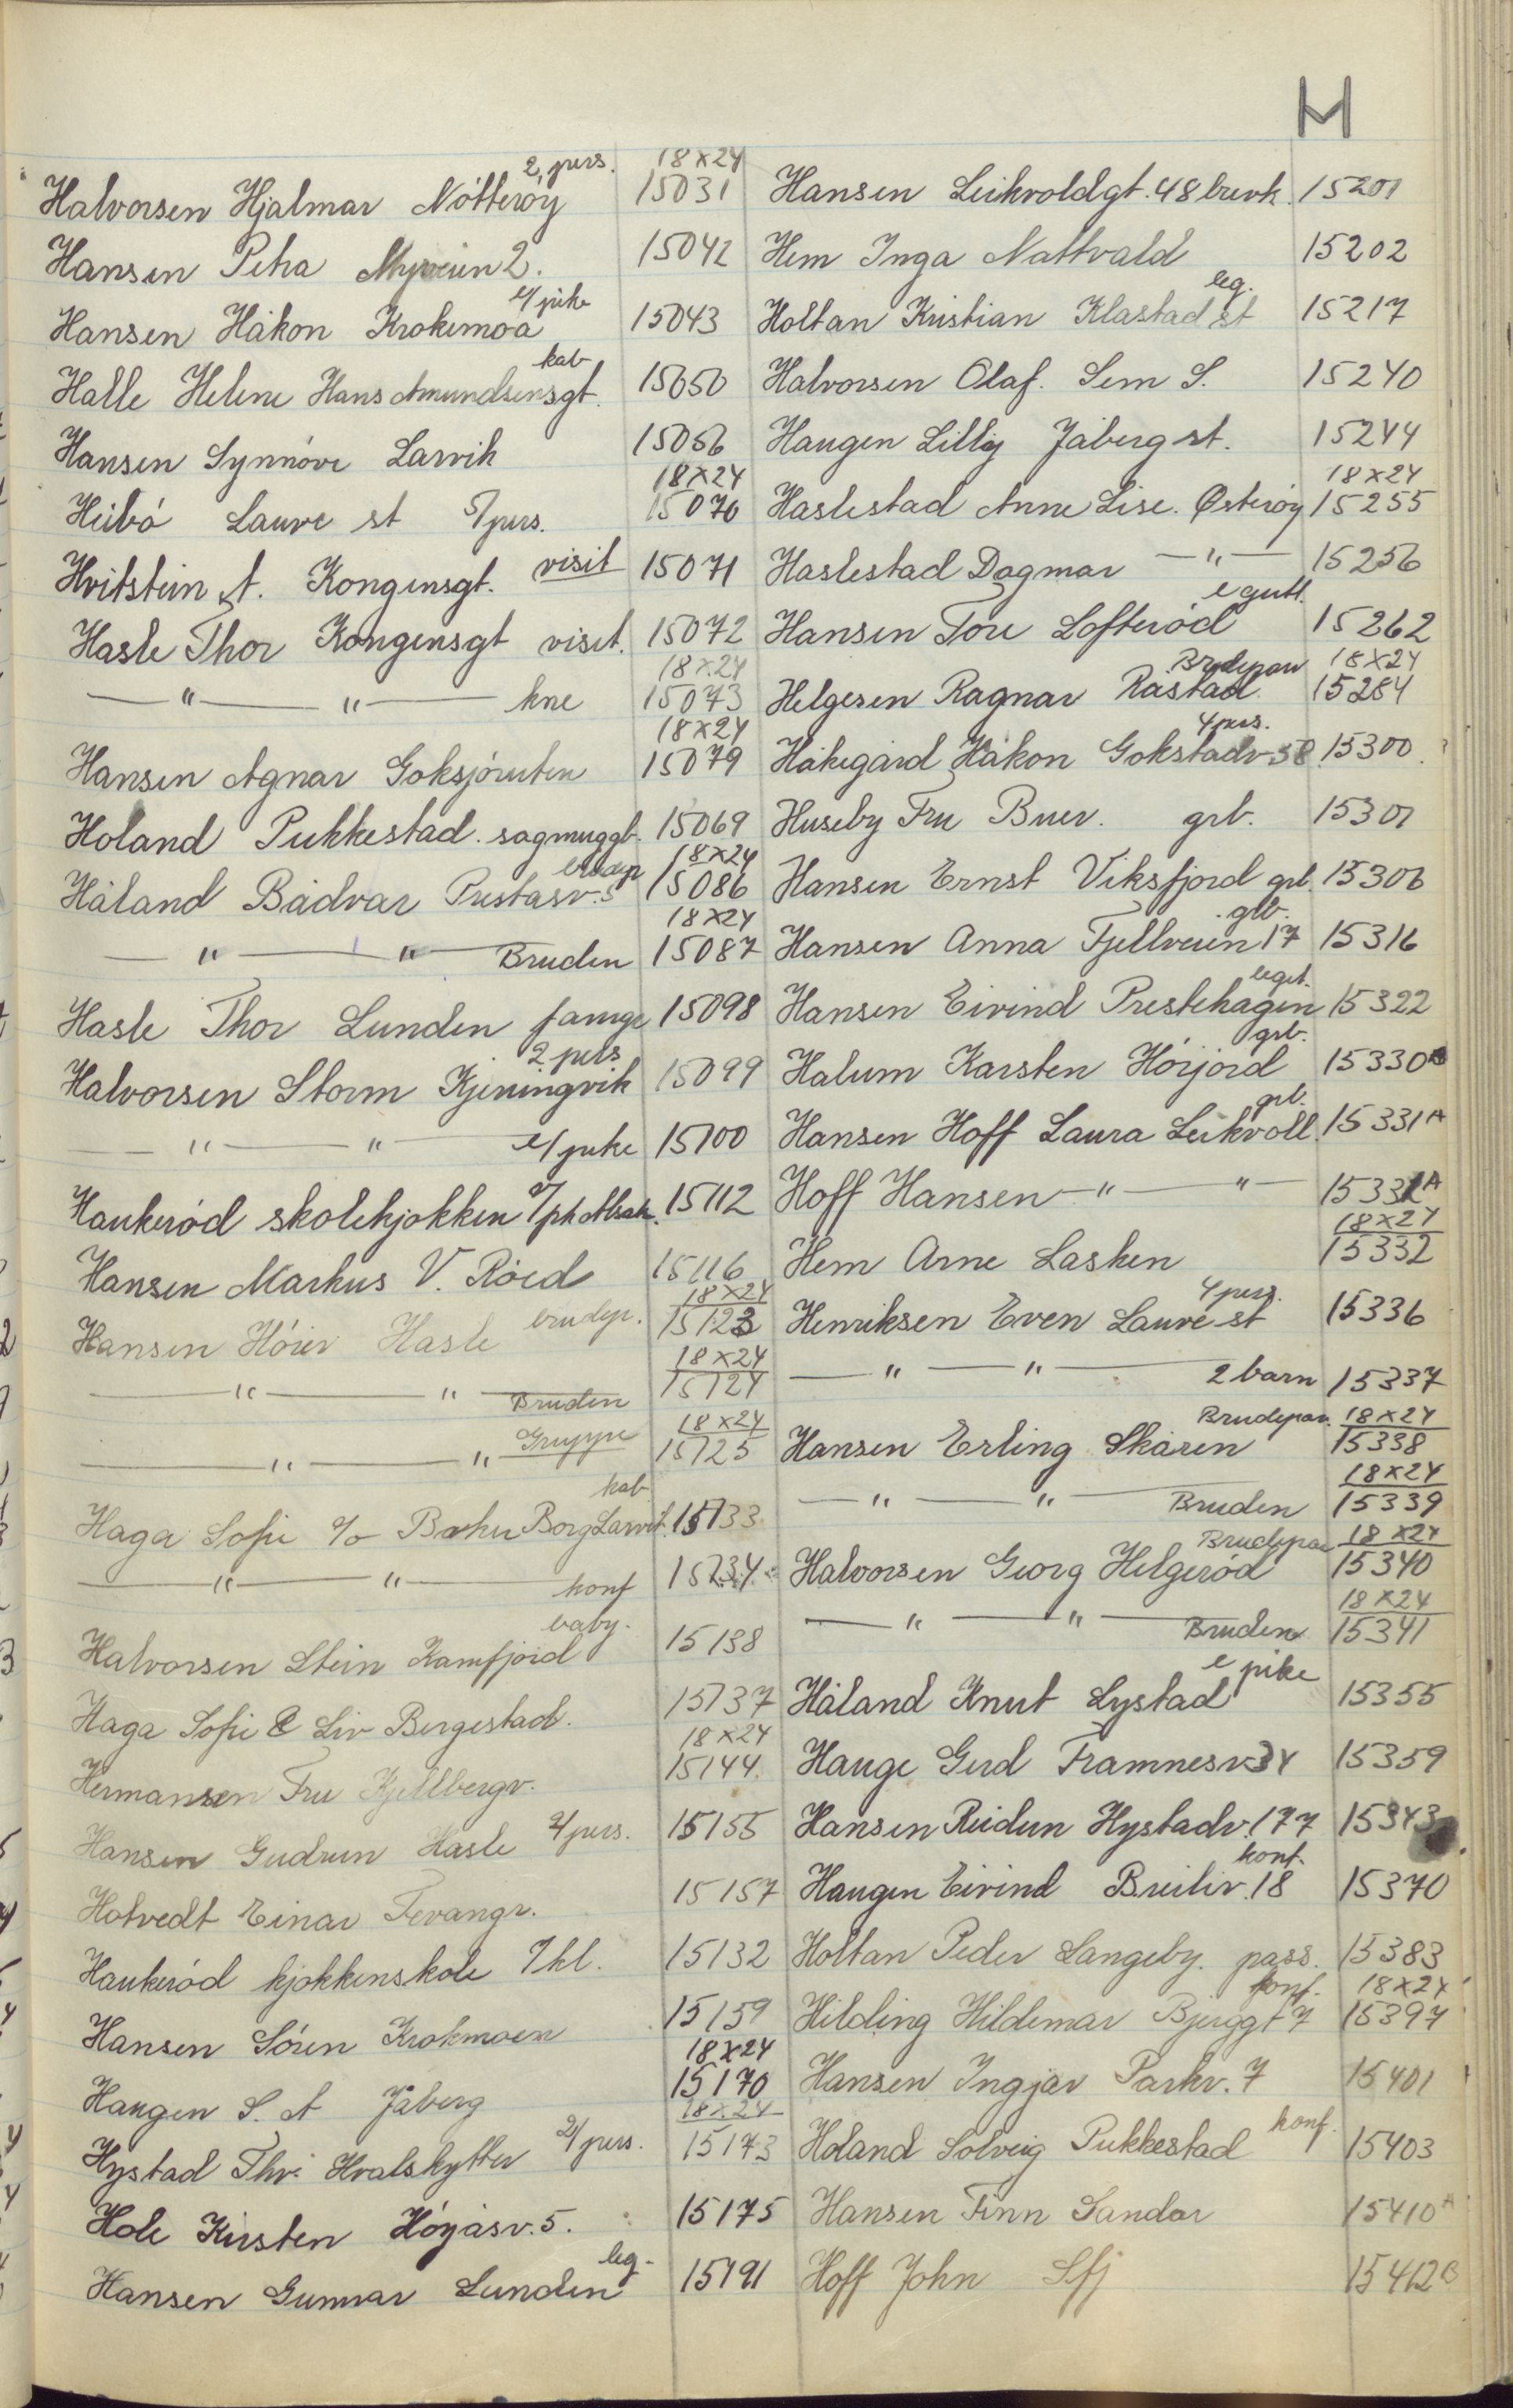 H
Halvorsen Hjalmar Nötteröy 2 pers. 18x24 15031
Hansen Petra Myrveien 2. 15042
Hansen Håkon Krokemoa e/pike 15043
Halle Helene Hans Amundsensgt. kab 15050
Hansen Synnöve Larvik 15056
Heibö Lauve st 5/pers. 18x24 15070
Hvitstein A. Kongensgt. visit 15071
Hasle Thor Kongensgt visit. 15072
—"— —"— kne 18x24 15073
Hansen Agnar Goksjöruten 18x24 15079
Holand Pukkestad. sagmuggb. 15069
Håland Bådvar Preståsv. 5 brudep 18x24 15086
—"— —"— Bruden 18x24 15087
Hasle Thor Lunden famge 15098
Halvorsen Storm Kjeningvik 2 pers 15099
—"— —"— e/pike 15100
Haukeröd skolekjökken 15112
Hansen Markus V. Röed 15116
Hansen Höier Hasle brudep. 18x24 15123
—"— —"— Bruden 18x24 15124
—"— —"— Gruppe 18x24 15125
Haga Sofie c/o Borg Larvik kab 15133
—"— —"— konf 15134
Halvorsen Stein Kamfjord baby. 15138
Haga Sofie & Liv Bergestad. 15137
Hermansen Fru Kjellbergv. 18x24 15144
Hansen Gudrun Hasle 2/pers. 15155
Hotvedt Einar Fevangr. 15157
Haukeröd kjökkenskole 7kl. 15132
Hansen Sören Krokmoen 15159
Haugen S. A Jåberg 18x24 15170
Hystad Thv. Hvalskytter 2/pers. 18x24 15173
Hole Kirsten Höyåsv. 5. 15175
Hansen Gunnar Lunden leg. 15191
Hansen Leikvoldgt. 48 brevk. 15201
Hem Inga Nattvald 15202
Holtan Kristian Klastad st leg. 15217
Halvorsen Olaf. Sem S. 15240
Haugen Lilly Jåberg st. 15244
Haslestad Anne Lise. Østeröy 18x24 15255
Haslestad Dagmar —"— 15256
Hansen Tore Lofteröd e gutt. 15262
Helgesen Ragnar Råstad Brudepar 18x24 15284
Håkegård Håkon Gokstadv. 58 4 pers. 15300
Huseby Fru Buer. grb. 15301
Hansen Ernst Viksfjord grb. 15306
Hansen Anna Fjellveien 17 glb. 15316
Hansen Eivind Prestehagen leget. 15322
Halum Karsten Hörjord grb. 15330 B
Hansen Hoff Laura Leikvoll grb. 15331 A
Hoff Hansen —"— —"— 15331 A
Hem Arne Lasken 18x24 15332
Henriksen Even Lauve st 4 pers. 15336
—"— —"— 2 barn 15337
Hansen Erling Skåren Brudepar. 18x24 15338
—"— —"— Bruden 18x24 15339
Halvorsen Georg Helgeröd Brudepar 18x24 15340
—"— —"— Bruden 18x24 15341
Håland Knut Lystad e pike 15355
Hauge Gerd Framnesv 34 15359
Hansen Reidun Hystadv. 177 15343
Haugen Eivind Breiliv. 18 konf. 15370
Holtan Peder Langeby. pass. 15383
Hilding Hildemar Bjerggt 7 konf. 18x24 15397
Hansen Ingjar Parkv. 7 15401
Holand Solveig Pukkestad konf. 15403
Hansen Finn Sandar 15410 A
Hoff John Sfj 15412 B